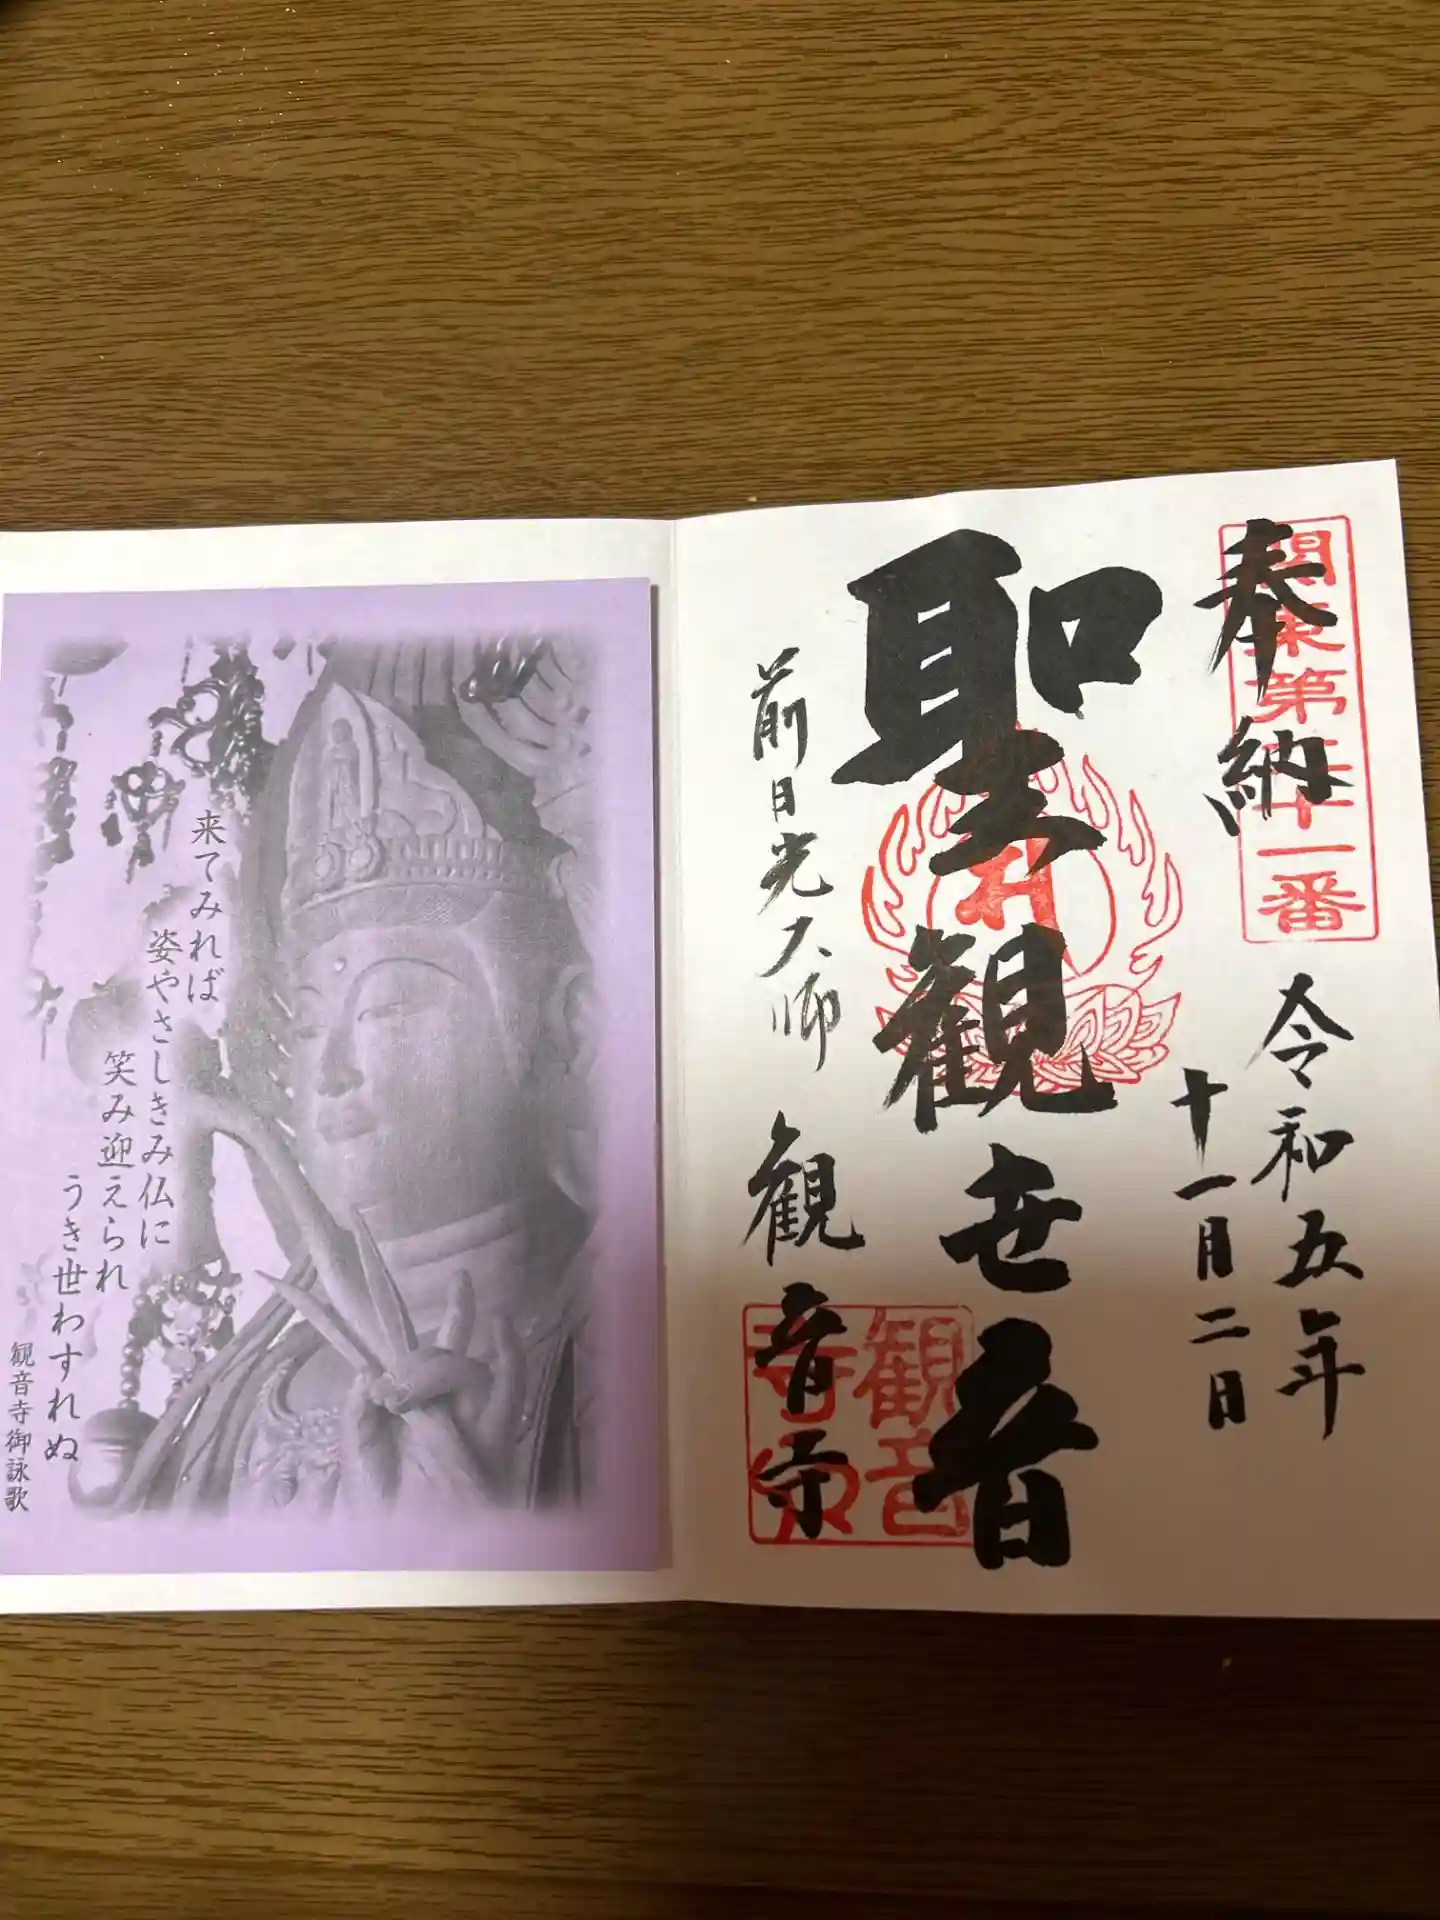 関東第二十一番
奉納
令和五年
十一月二日
聖観世音
前日光大師 観音寺
観音寺印
来てみれば
姿やさしきみ仏に
笑み迎えられ
うき世わすれぬ
観音寺御詠歌